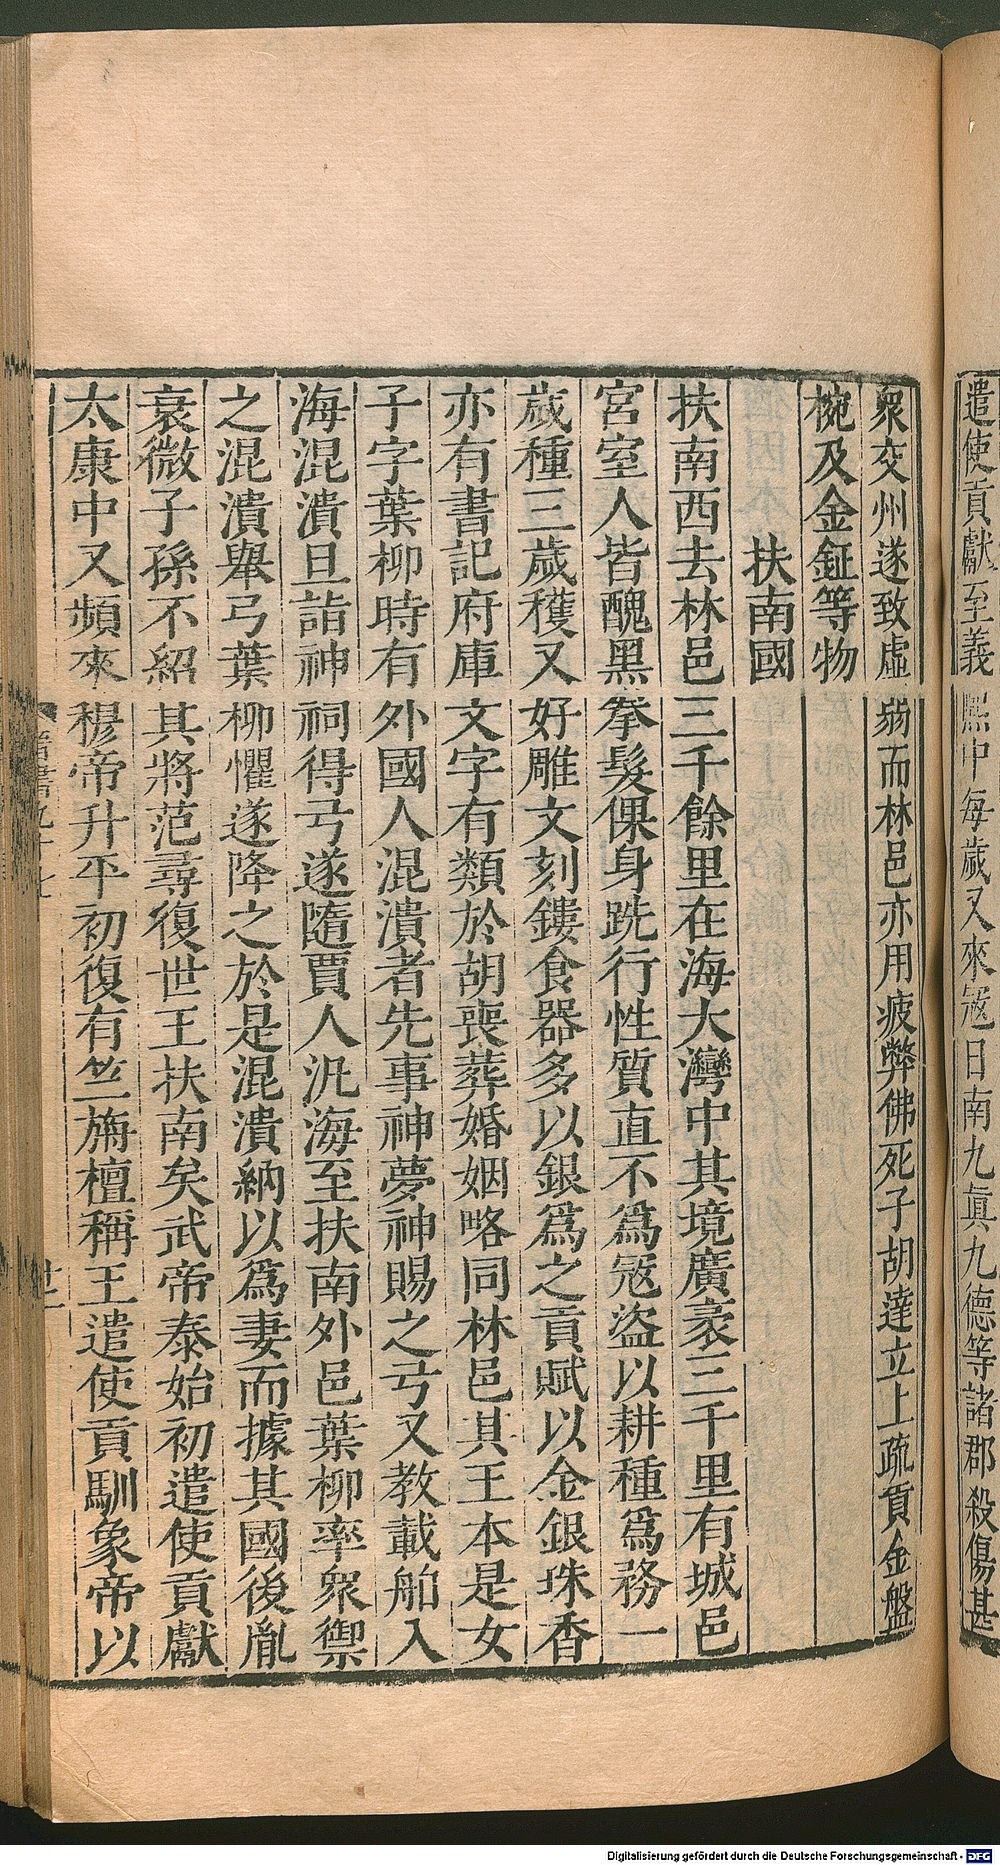 遣使貢獻至義熙中每歲又來寇日南九眞九德等諸郡殺傷甚
衆交州遂致虛弱而林邑亦用疲弊佛死子胡達立上疏貢金盤
椀及金鉦等物
扶南國
扶南西去林邑三千餘里在海大灣中其境廣袤三千里有城邑
宮室人皆醜黑拳髮倮身跣行性質直不爲寇盜以耕種爲務一
歲種三歲穫又好雕文刻鏤食器多以銀爲之貢賦以金銀珠香
亦有書記府庫文字有類於胡喪葬婚姻略同林邑其王本是女
子字葉柳時有外國人混潰者先事神夢神賜之弓又教載舶入
海混潰旦詣神祠得弓遂隨賈人汎海至扶南外邑葉柳率衆禦
之混潰舉弓葉柳懼遂降之於是混潰納以爲妻而據其國後胤
衰微子孫不紹其將范尋復世王扶南矣武帝泰始初遣使貢獻
太康中又頻來穆帝升平初復有竺旃檀稱王遣使貢馴象帝以
晉書九十七
廿一
Digitalisierung gefördert durch die Deutsche Forschungsgemeinschaft - DFG